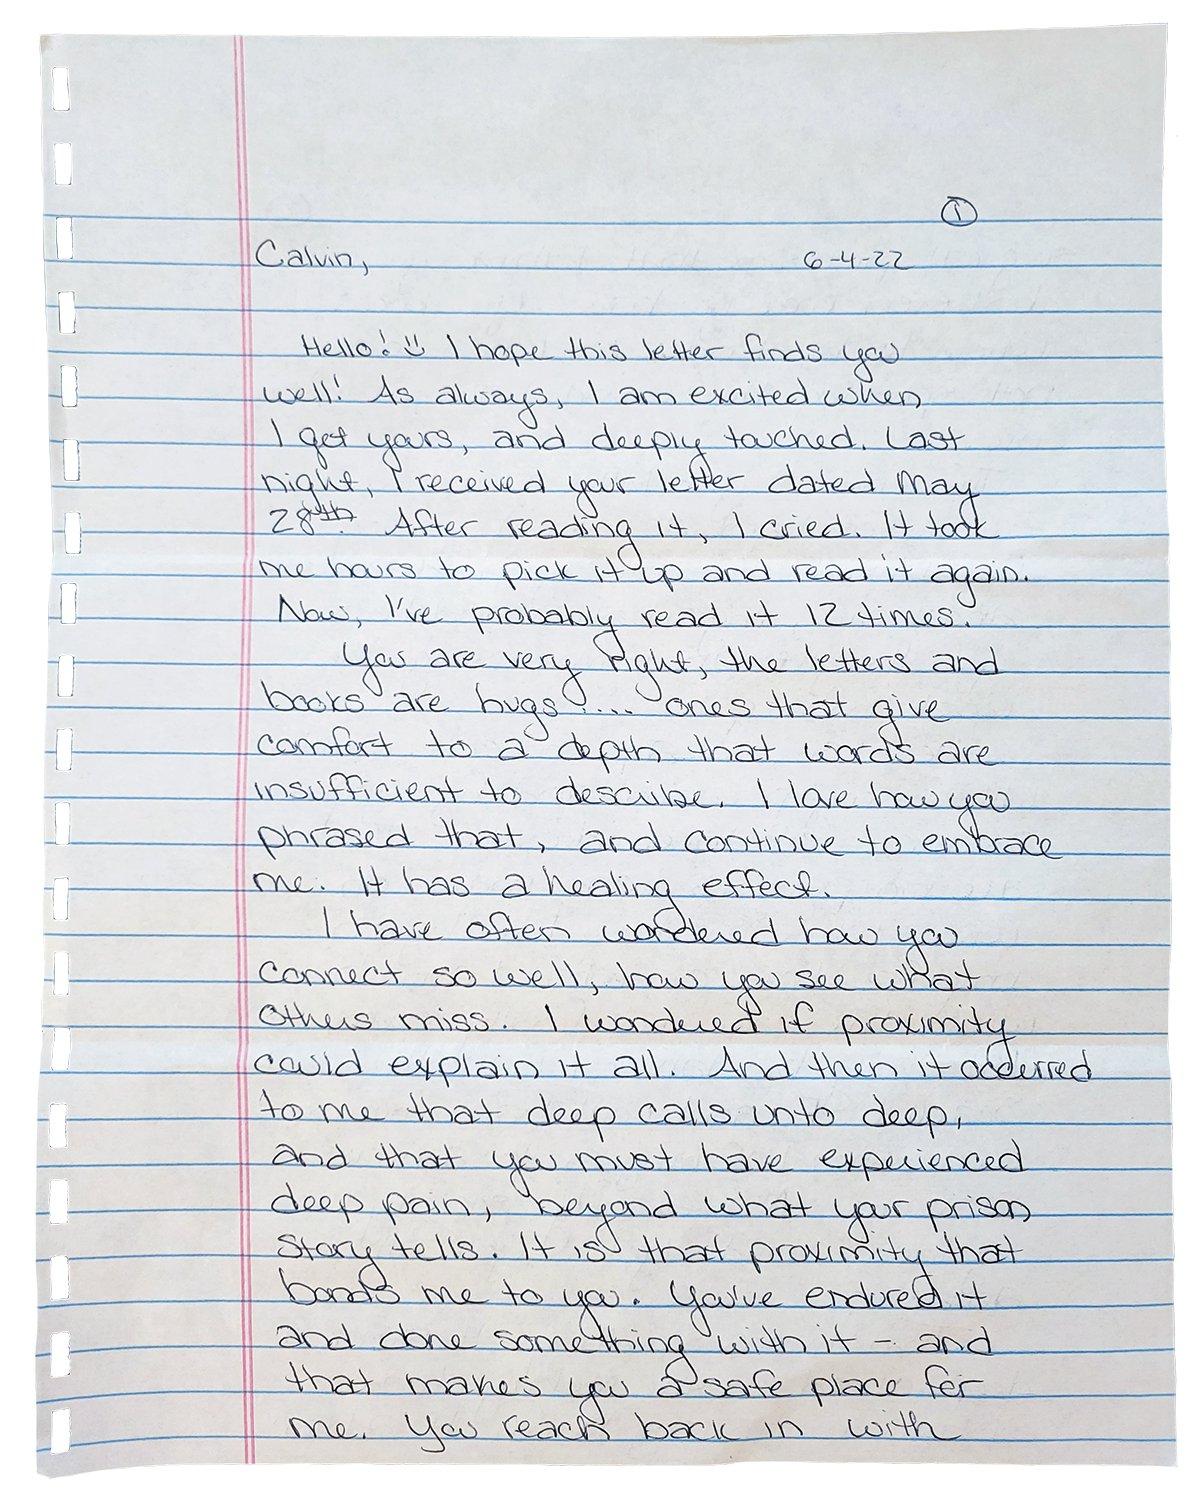 1
Calvin, 6-4-22
Hello! I hope this letter finds you
well! As always, I am excited when
I get yours, and deeply touched. Last
night, I received your letter dated May
28th. After reading it, I cried. It took
me hours to pick it up and read it again.
Now, I've probably read it 12 times.
You are very right, the letters and
books are hugs.... ones that give
comfort to a depth that words are
insufficient to describe. I love how you
phrased that, and continue to embrace
me. It has a healing effect.
I have often wondered how you
connect so well, how you see what
others miss. I wondered if proximity
could explain it all. And then it occurred
to me that deep calls unto deep,
and that you must have experienced
deep pain, beyond what your prison
story tells. It is that proximity that
bonds me to you. You've endured it
and done something with it - and
that makes you a safe place for
me. You reach back in with